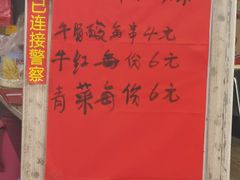 已连接警察
牛腩酸每串4元
牛红每份6元
青菜每份6元